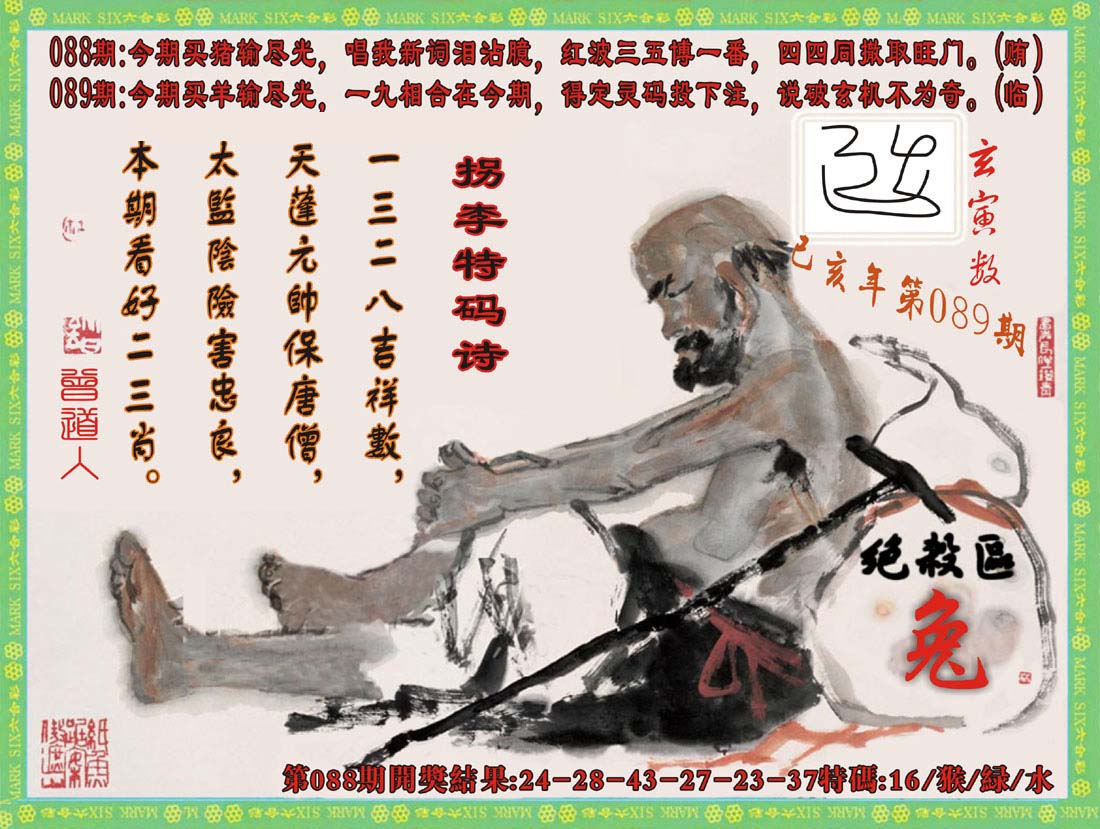 MARK SIX六合彩
088期:今期买猪输尽光，唱歌新词泪沾臆，红波三五博一番，四四同撒取旺门。(贿)
089期:今期买羊输尽光，一九相合在今期，得定灵码投下注，说破玄机不为奇。(临)
拐李特码诗
一三二八吉祥數，
天蓬元帥保唐僧，
太監陰險害忠良，
本期看好二三肖。
曾道人
玄寅数
己亥年第089期
绝殺區
兔
第088期開獎結果:24-28-43-27-23-37特碼:16/猴/緑/水